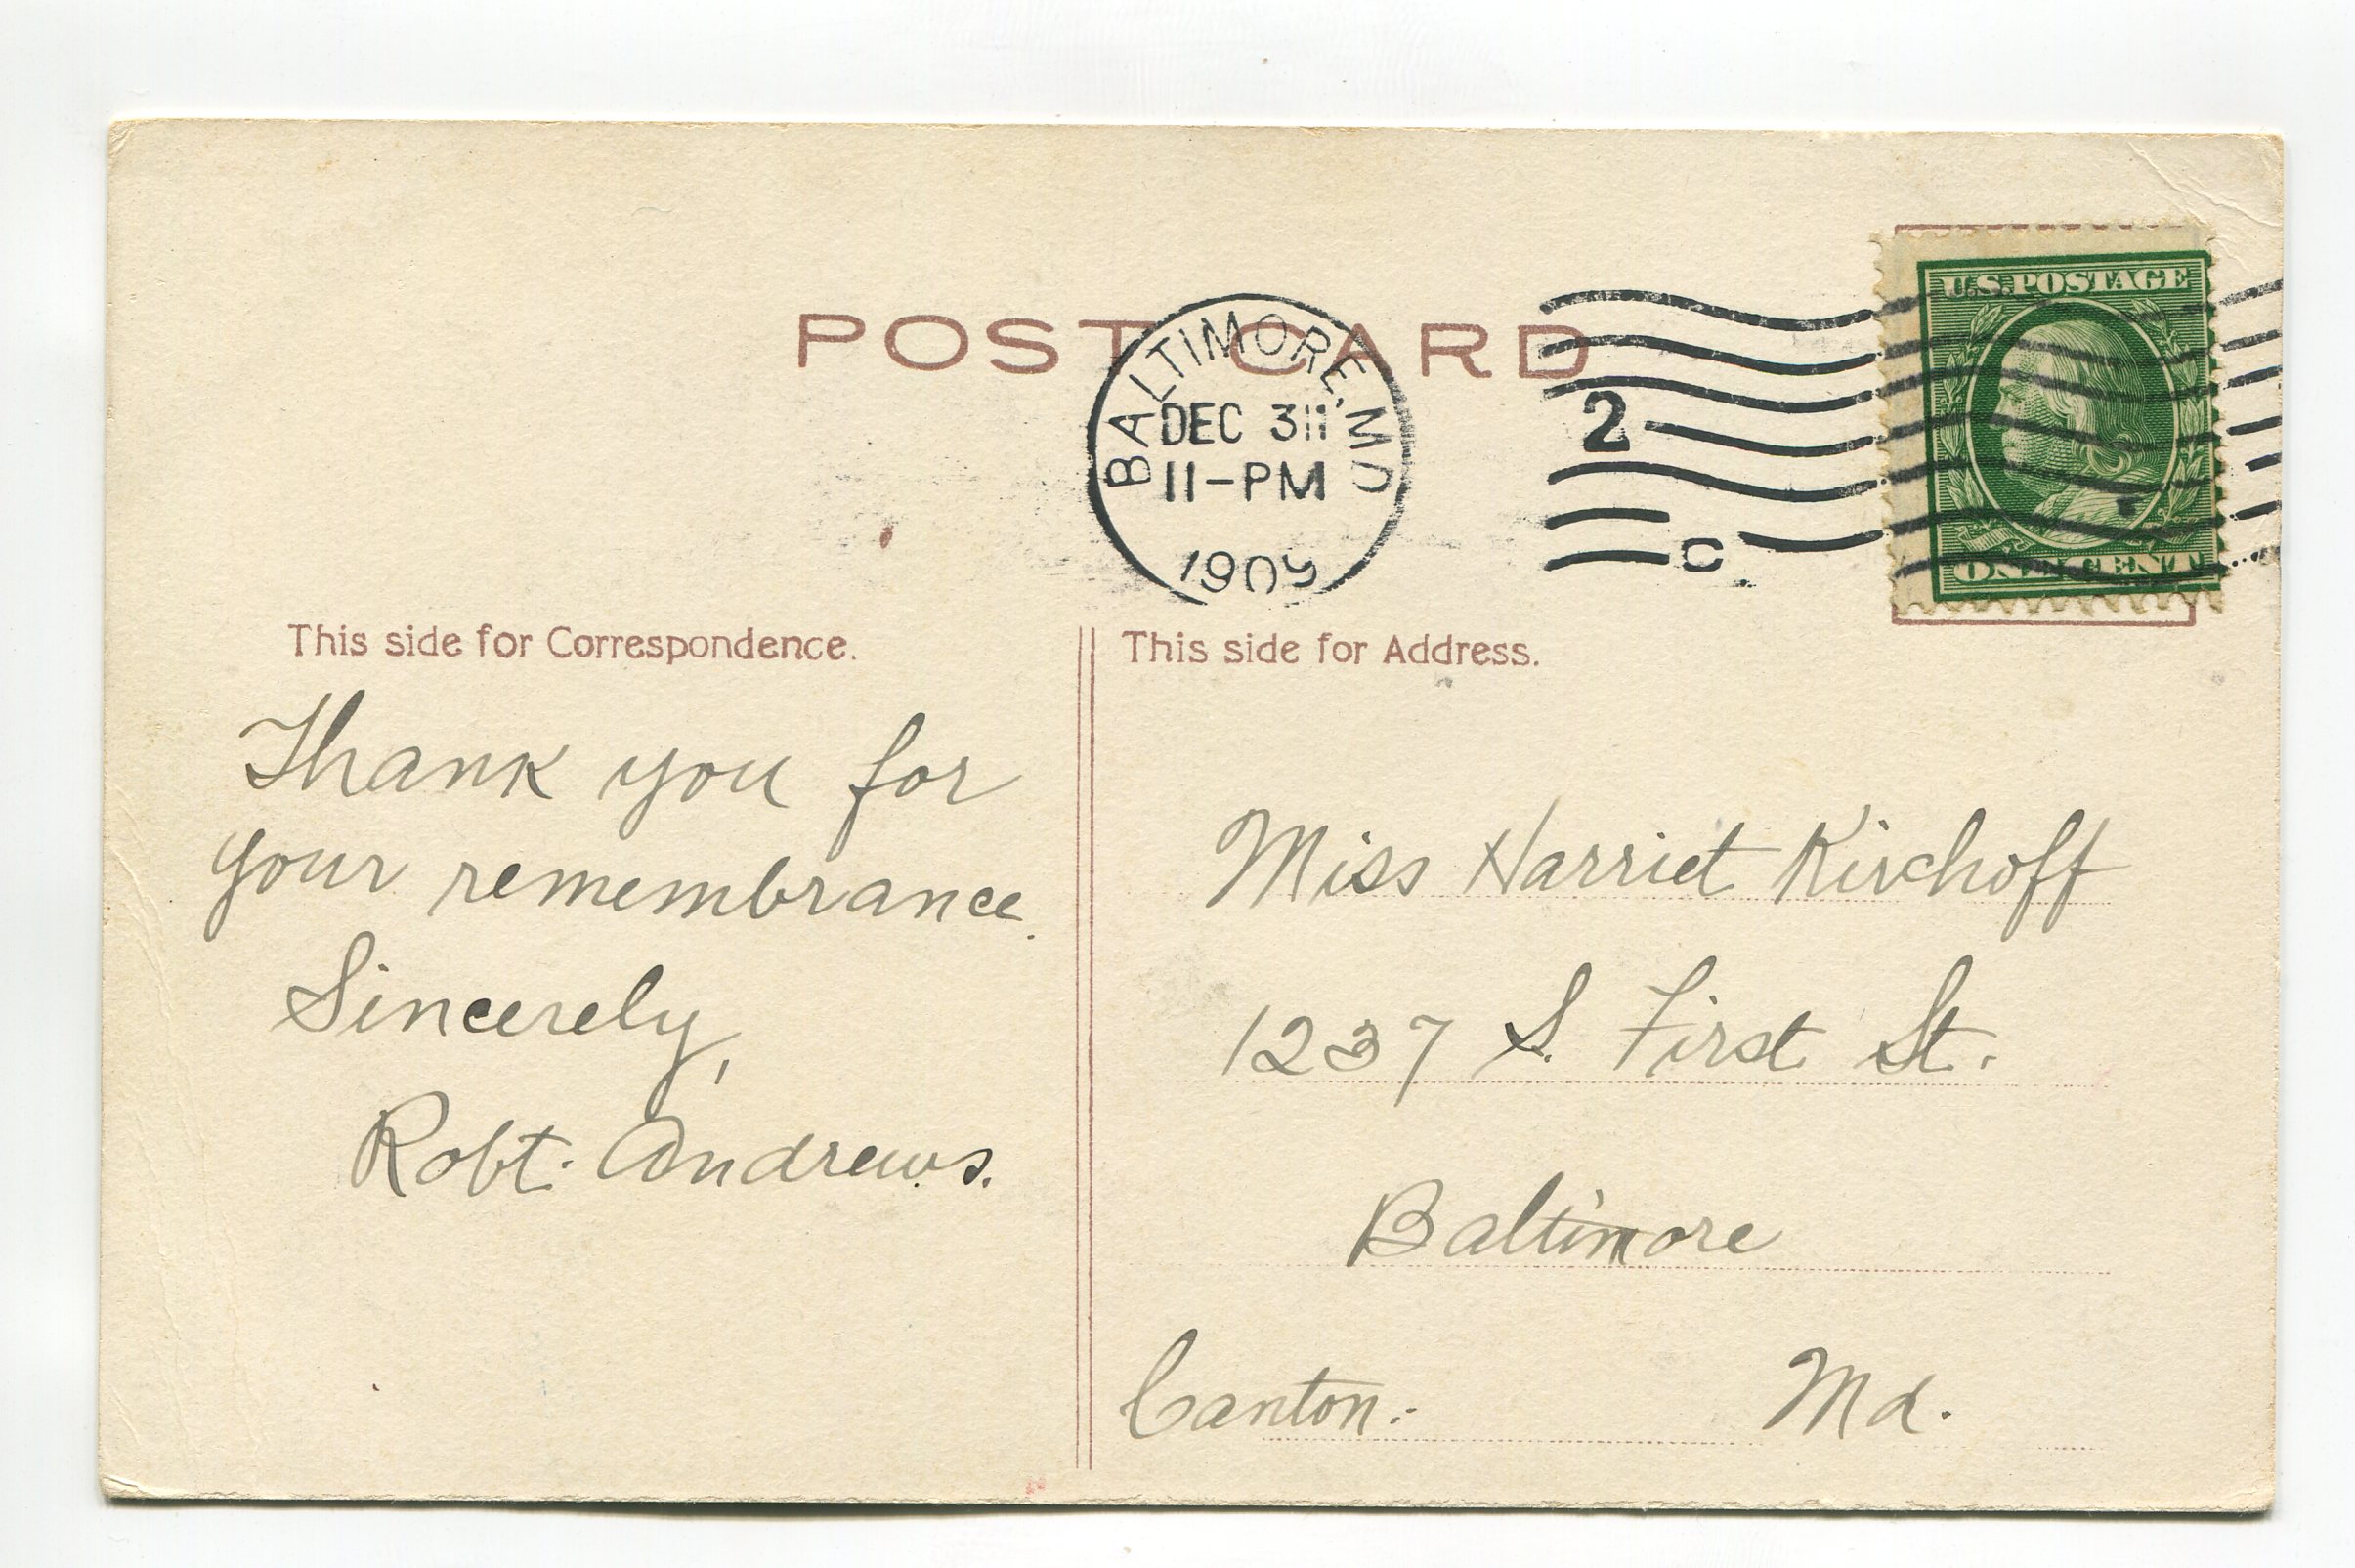 POST CARD
BALTIMORE, MD
DEC 31
11-PM
1909
2
C
U.S. POSTAGE
ONE CENT
This side for Correspondence.
This side for Address.
Thank you for
your remembrance.
Sincerely,
Robt. Andrews.
Miss Harriet Kirchoff
1237 S. First St.
Baltimore
Canton. Md.